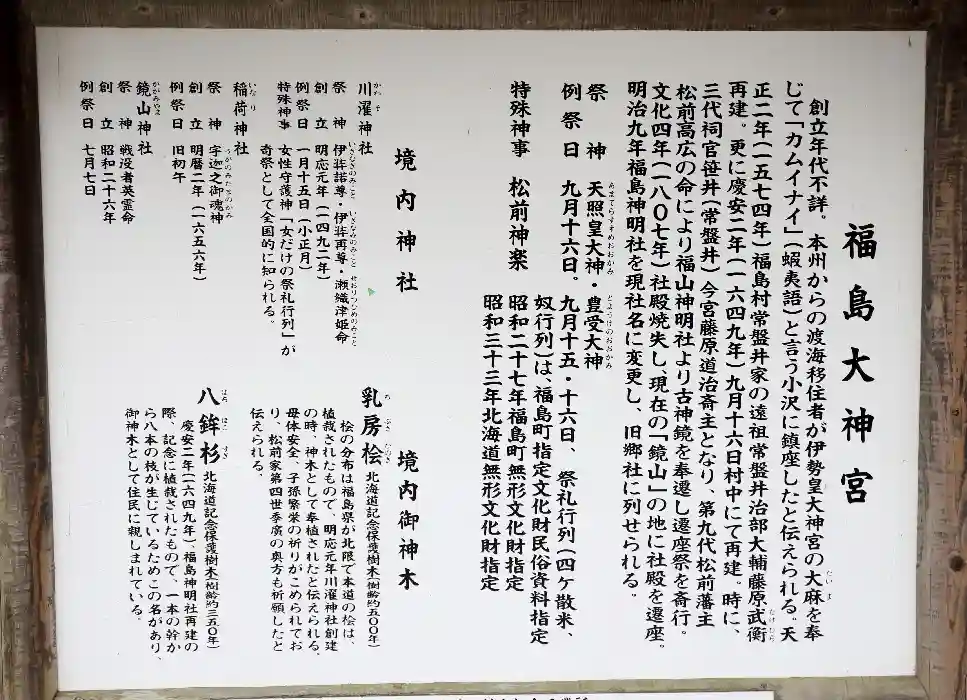 福島大神宮
創立年代不詳。本州からの渡海移住者が伊勢皇大神宮の大麻を奉
じて「カムイナイ」(蝦夷語)と言う小沢に鎮座したと伝えられる。天
正二年(一五七四年)福島村常盤井家の遠祖常盤井治部大輔藤原武衡
再建。更に慶安二年(一六四九年)九月十六日村中にて再建。時に、
三代祠官笹井(常盤井)今宮藤原道治斎主となり、第九代松前藩主
松前高広の命により福山神明社より古神鏡を奉遷し遷座祭を斎行。
文化四年(一八〇七年)社殿焼失し、現在の「鏡山」の地に社殿を遷座。
明治九年福島神明社を現社名に変更し、旧郷社に列せられる。
祭神 天照皇大神・豊受大神
例祭日 九月十六日。九月十五・十六日、祭礼行列(四ケ散米、
奴行列)は、福島町指定文化財民俗資料指定
特殊神事 松前神楽 昭和二十七年福島町無形文化財指定
昭和三十三年北海道無形文化財指定
境内神社
川濯神社
祭神 伊弉諾尊・伊弉再尊・瀬織津姫命
創立 明応元年(一四九二年)
例祭日 一月十五日(小正月)
特殊神事 女性守護神「女だけの祭礼行列」が
奇祭として全国的に知られる。
稲荷神社
祭神 宇迦之御魂神
創立 明暦二年(一六五六年)
例祭日 旧初午
鏡山神社
祭神 戦没者英霊命
創立 昭和二十六年
例祭日 七月七日
境内御神木
乳房桧 北海道記念保護樹木(樹齢約五〇〇年)
桧の分布は福島県が北限で本道の桧は、
植裁されたもので、明応元年川濯神社創建
の時、神木として奉植されたと伝えられる。
母体安全、子孫繁栄の祈りがこめられてお
り、松前家第四世季広の奥方も祈願したと
伝えられる。
八鉾杉 北海道記念保護樹木(樹齢約三五〇年)
慶安二年(一六四九年)、福島神明社再建の
際、記念に植裁されたもので、一本の幹か
ら八本の枝が生じているためこの名があり、
御神木として住民に親しまれている。